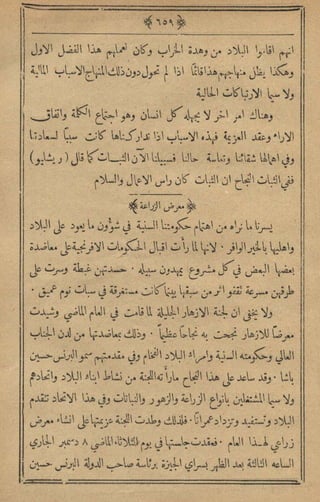 ﴿ ٦٥٩ ﴾
انهم اقاموا البلاد من وهدة الخراب وكان لعملهم هذا الفضل الاول
وهكذا يظل منهاجهم هذا قائمًا اذا لم تحول دون ذلك المنهاج الاسباب المالية
ولا سيما الارتباكات الحالية
وهناك امر اخر لا يجهله كل انسان وهو اجتماع الكلمة واتفاق
الاراء وعقد العزيمة فهذه الاسباب اذا تداركناها كانت سببًا لسعادتنا
وفي اهمالها شقائنا وتعاسة حالنا فسبيلنا الآن الثبات كما قال (ريشليو)
ففي الثبات النجاح ان الثبات كان راس الاعمال والسلام
﴿ معرض الزراعة ﴾
يسرنا ما نراه من اهتمام حكومتنا السنية في شؤون ما يعود على البلاد
واهليها بالخير الوافر. لانها لما رأت اقبال الحكومات الافرنجية على معاضدة
بعضها البعض في كل مشروع يمهدون سبيله. حسدتهن غبطة وسرت على
طرقهن مسرعة تقفو اثر من سبقها بينما كانت مستغرقة في سبات نوم عميق.
ولا يخفى ان لجنة الازهار الجليلة لما قامت في العام الماضي وشيدت
معرضًا للازهار نجحت به نجاحًا عظيمًا. وذلك بمعاضدتها من لدن الجناب
العالي وحكومته السنية وامراء البلاد الفخام وفي مقدمتهم سمو البرنس حسين
باشا. وقد ساعد على هذا النجاح ما رأته اللجنة من نشاط ابناء البلاد واتحادهم
ولا سيما المشتغلين بانواع الزراعة والزهور والنباتات وفي هذا الاتحاد تتقدم
البلاد وتستفيد وتزداد عمرانًا. فلذلك وطدت اللجنة عزيمتها على انشاء معرض
زراعي لهذا العام. فعقدت جلستها في يوم الثلاثاء الماضي ٨ دسمبر الجاري
الساعه الثالثة بعد الظهر بسراي الجيزة برئاسة صاحب الدولة البرنس حسين